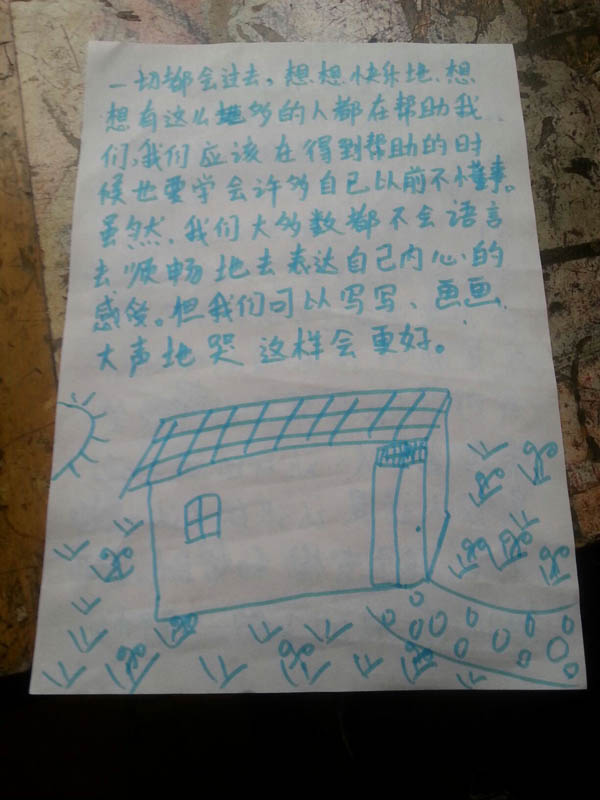 一切都会过去，想想快乐地，想
想有这么多的人都在帮助我
们，我们应该在得到帮助的时
候也要学会许多自己以前不懂事。
虽然，我们大多数都不会语言
去顺畅地去表达自己内心的
感受。但我们可以写写、画画、
大声地哭 这样会更好。